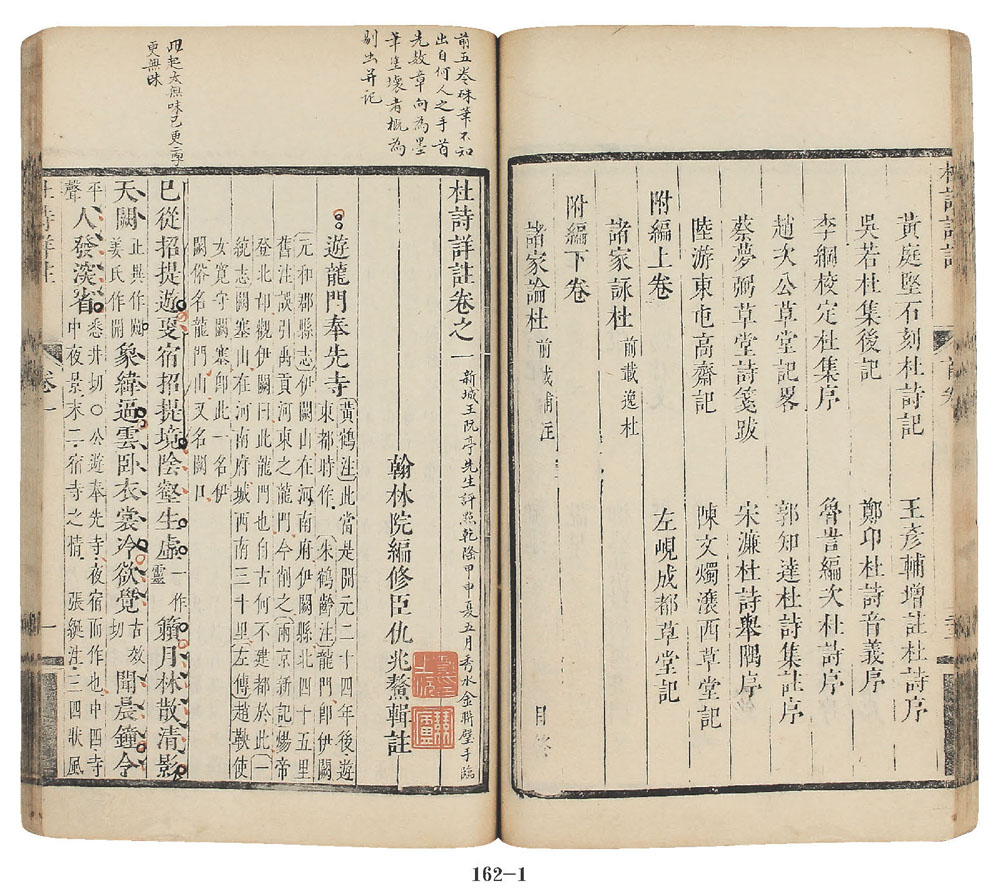 杜詩詳註
首卷
黃庭堅石刻杜詩記
王彥輔增註杜詩序
吳若杜集後記
鄭卬杜詩音義序
李綱校定杜集序
魯訔編次杜詩序
趙次公草堂記畧
郭知達杜詩集註序
蔡夢弼草堂詩箋跋
宋濂杜詩舉隅序
陸游東屯高齋記
陳文燭瀼西草堂記
附編上卷
左峴成都草堂記
諸家詠杜 前載逸杜
附編下卷
諸家論杜 前載補註
目終
前五卷硃筆不知
出自何人之手首
先數章向為墨
筆塗壞者概為
剔出并記
杜詩詳註卷之一
新城王阮亭先生評點乾隆甲申夏五月秀水金聯璧手臨
翰林院編修臣仇兆鰲輯註
遊龍門奉先寺
黃鶴注此當是開元二十四年後遊
東都時作 朱鶴齡注龍門即伊闕
元和郡縣志伊闕山在河南府伊闕縣北四十五里
舊注誤引禹貢河東之龍門今削之 兩京新記煬帝
登北邙觀伊闕曰此龍門也自古何不建都於此 一
統志闕塞山在河南府城西南三十里 左傳趙鞅使
女寬守闕塞即此一名伊
闕俗名龍門山又名闕口
已從招提遊更宿招提境陰壑生虛 一作靈 籟月林散清影
天闕 止異作闚 姜氏作開 象緯逼雲臥衣裳冷欲覺 古效切 聞晨鐘令
平聲 人發深省 悉井切○公遊奉先寺夜宿而作也中四寺
中夜景末二宿寺之情 張綖注三四狀風
更無味
杜詩詳註
卷一
一
162-1